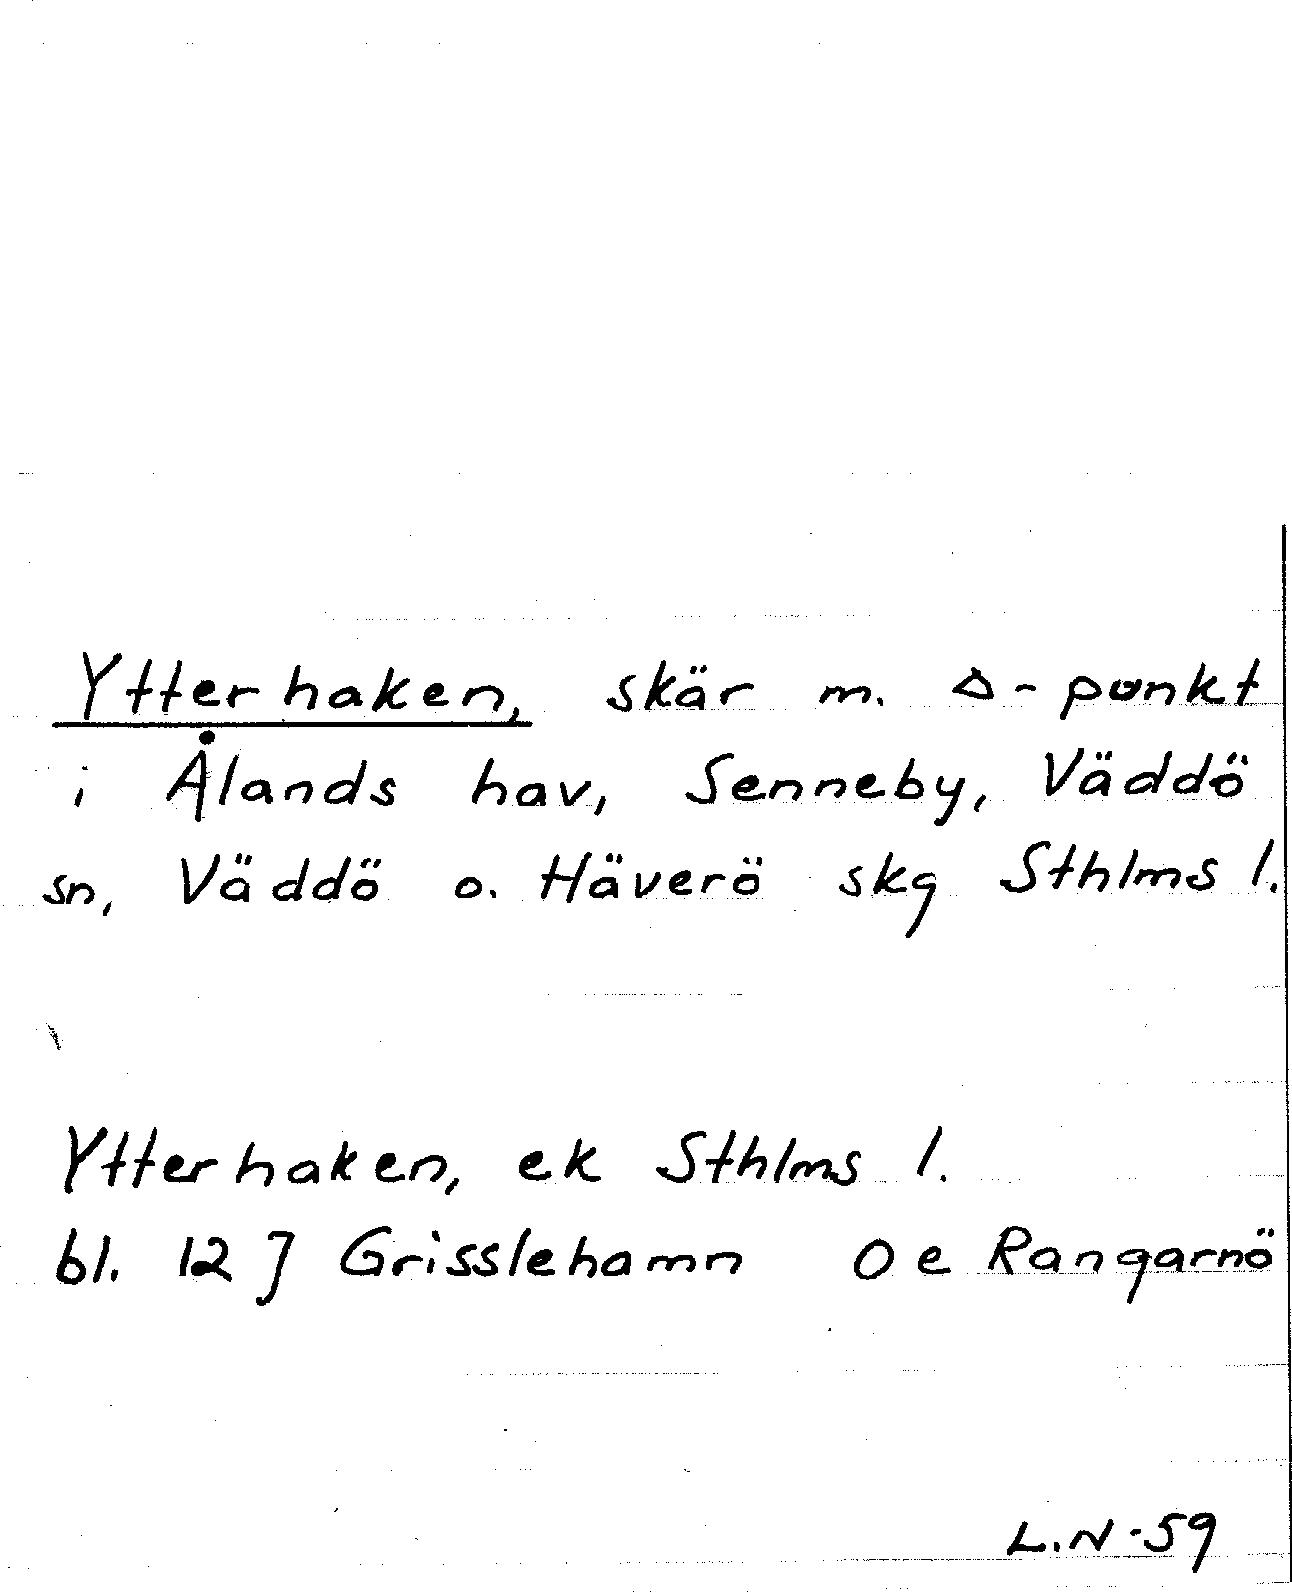 Ytterhaken, skär m. Δ-punkt
i Ålands hav, Senneby, Väddö
sn, Väddö o. Häverö skg Sthlms l.
Ytterhaken, ek Sthlms l.
bl. 12 J Grisslehamn O e Rangarnö
L.N -59